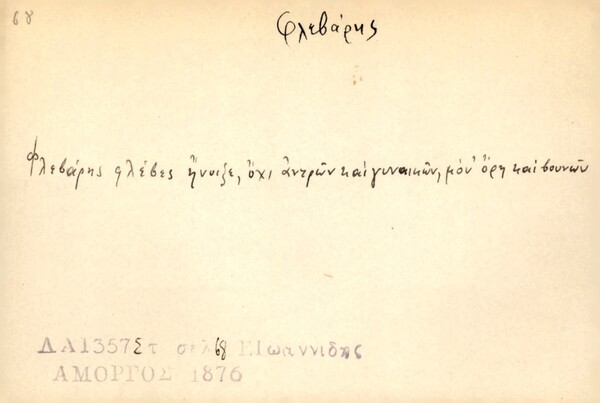 68
Φλεβάρης
Φλεβάρης φλέβες ἤνοιξε, ὄχι ἀντρῶν καὶ γυναικῶν, μόν' ὄρη καὶ βουνῶν
ΔΑ1357Στ σελ 68 ΕΙωαννιδης
ΑΜΟΡΓΟΣ 1876